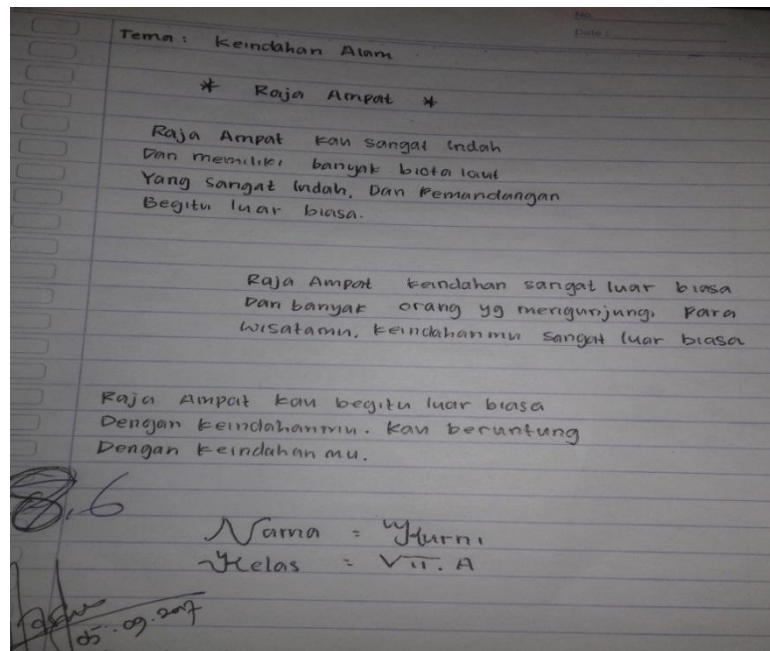 No.
Date :
Tema : Keindahan Alam
* Raja Ampat *
Raja Ampat kau sangat indah
Dan memiliki banyak biota laut
Yang sangat indah. Dan Pemandangan
Begitu luar biasa.
Raja Ampat keindahan sangat luar biasa
Dan banyak orang yg mengunjungi Para
wisatamu. keindahanmu sangat luar biasa
Raja Ampat kau begitu luar biasa
Dengan keindahanmu. kau beruntung
Dengan keindahan mu.
8.6
Nama =
Kelas = VII. A
05.09.2017